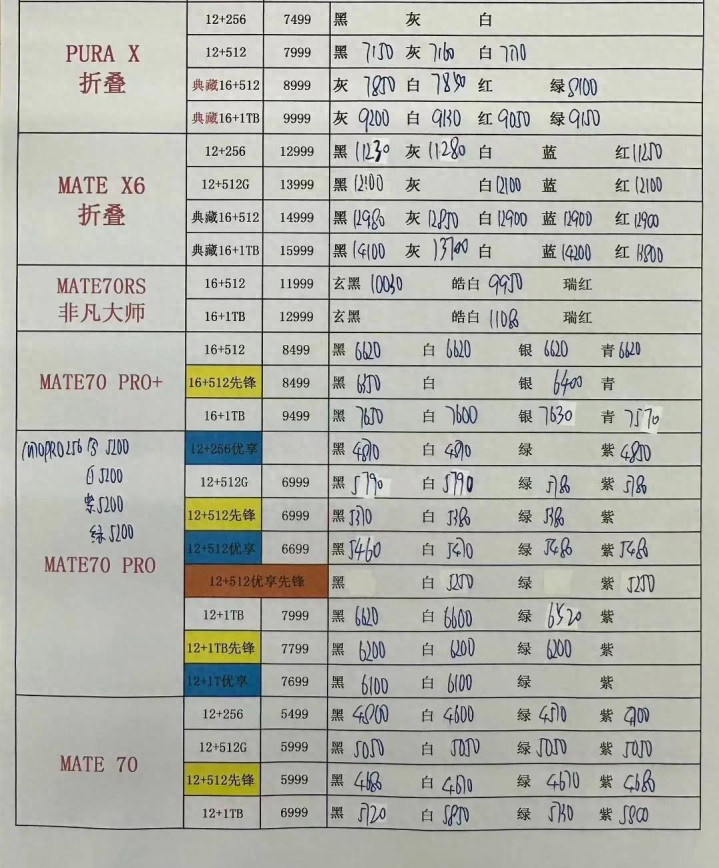 12+256 7499 黑 灰 白
PURA X
折叠
12+512 7999 黑 7150 灰 7160 白
典藏16+512 8999 灰 7850 白 7850 红 绿 8100
典藏16+1TB 9999 灰 9200 白 9130 红 9050 绿 9150
12+256 12999 黑 11230 灰 11280 白 蓝 红 11250
MATE X6
折叠
12+512G 13999 黑 12100 灰 白 12100 蓝 红 12100
典藏16+512 14999 黑 12980 灰 12850 白 12900 蓝 12900 红 12900
典藏16+1TB 15999 黑 14100 灰 13700 白 蓝 14200 红 13800
MATE70RS
非凡大师
16+512 11999 玄黑 10030 皓白 9950 瑞红
16+1TB 12999 玄黑 皓白 11080 瑞红
16+512 8499 黑 6620 白 6620 银 6620 青 6620
MATE70 PRO+
16+512先锋 8499 黑 6350 白 银 6400 青
16+1TB 9499 黑 7650 白 7600 银 7630 青 7570
5200
白 5200
紫 5200
绿 5200
MATE70 PRO
12+256优享 黑 白 绿 紫 4850
12+512G 6999 黑 5790 白 5790 绿 5780 紫 5780
12+512先锋 6999 黑 5370 白 5380 绿 5380 紫
12+512优享 6699 黑 5460 白 5470 绿 5480 紫 5480
12+512优享先锋 黑 白 5250 绿 紫 5250
12+1TB 7999 黑 6620 白 6600 绿 6520 紫
12+1TB先锋 7799 黑 6200 白 6200 绿 6200 紫
12+1T优享 7699 黑 6100 白 6100 绿 紫
MATE 70
12+256 5499 黑 白 4600 绿 紫
12+512G 5999 黑 5050 白 5050 绿 5050 紫 5050
12+512先锋 5999 黑 4680 白 4670 绿 4670 紫 4680
12+1TB 6999 黑 5720 白 5850 绿 紫 5800